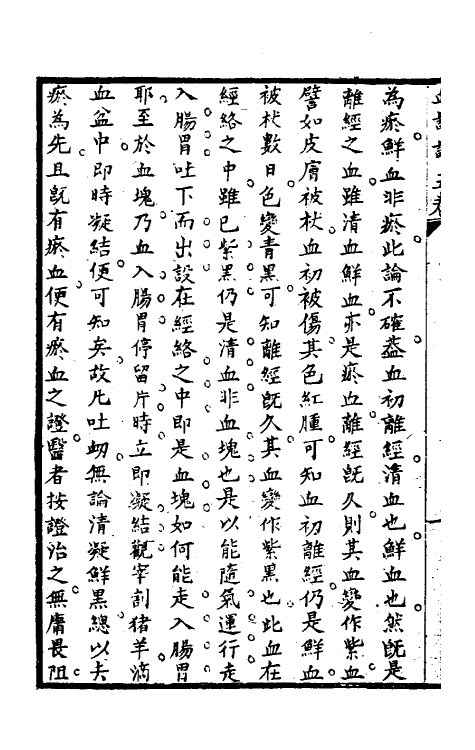 為瘀鮮血非瘀此論不確葢血初離經清血也鮮血也然旣是
離經之血雖清血鮮血亦是瘀血離經旣久則其血變作紫血
譬如皮膚被杖血初被傷其色紅腫可知血初離經仍是鮮血
被杖數日色變青黑可知離經旣久其血變作紫黑也此血在
經絡之中雖已紫黑仍是清血非血塊也是以能隨氣運行走
入腸胃吐下而出設在經絡之中即是血塊如何能走入腸胃
耶至於血塊乃血入腸胃停留片時立即凝結觀宰割猪羊滴
血盆中即時凝結便可知矣故凡吐衂無論清凝鮮黑總以去
瘀為先且旣有瘀血便有瘀血之證醫者按證治之無庸畏阻